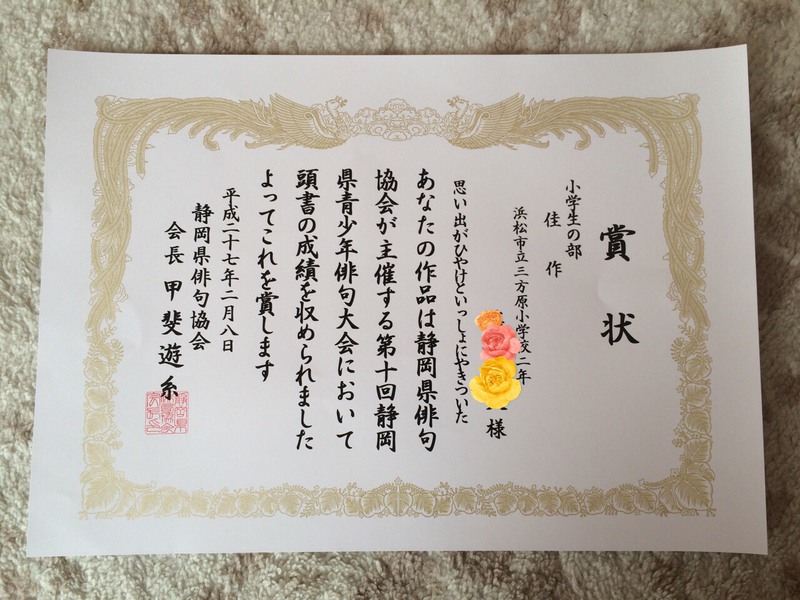 賞状
小学生の部
佳作
浜松市立三方原小学校二年
様
思い出がひやけどいっしょにやきついた
あなたの作品は静岡県俳句
協会が主催する第十回静岡
県青少年俳句大会において
頭書の成績を収められました
よってこれを賞します
平成二十七年二月八日
静岡県俳句協会
会長 甲斐遊糸